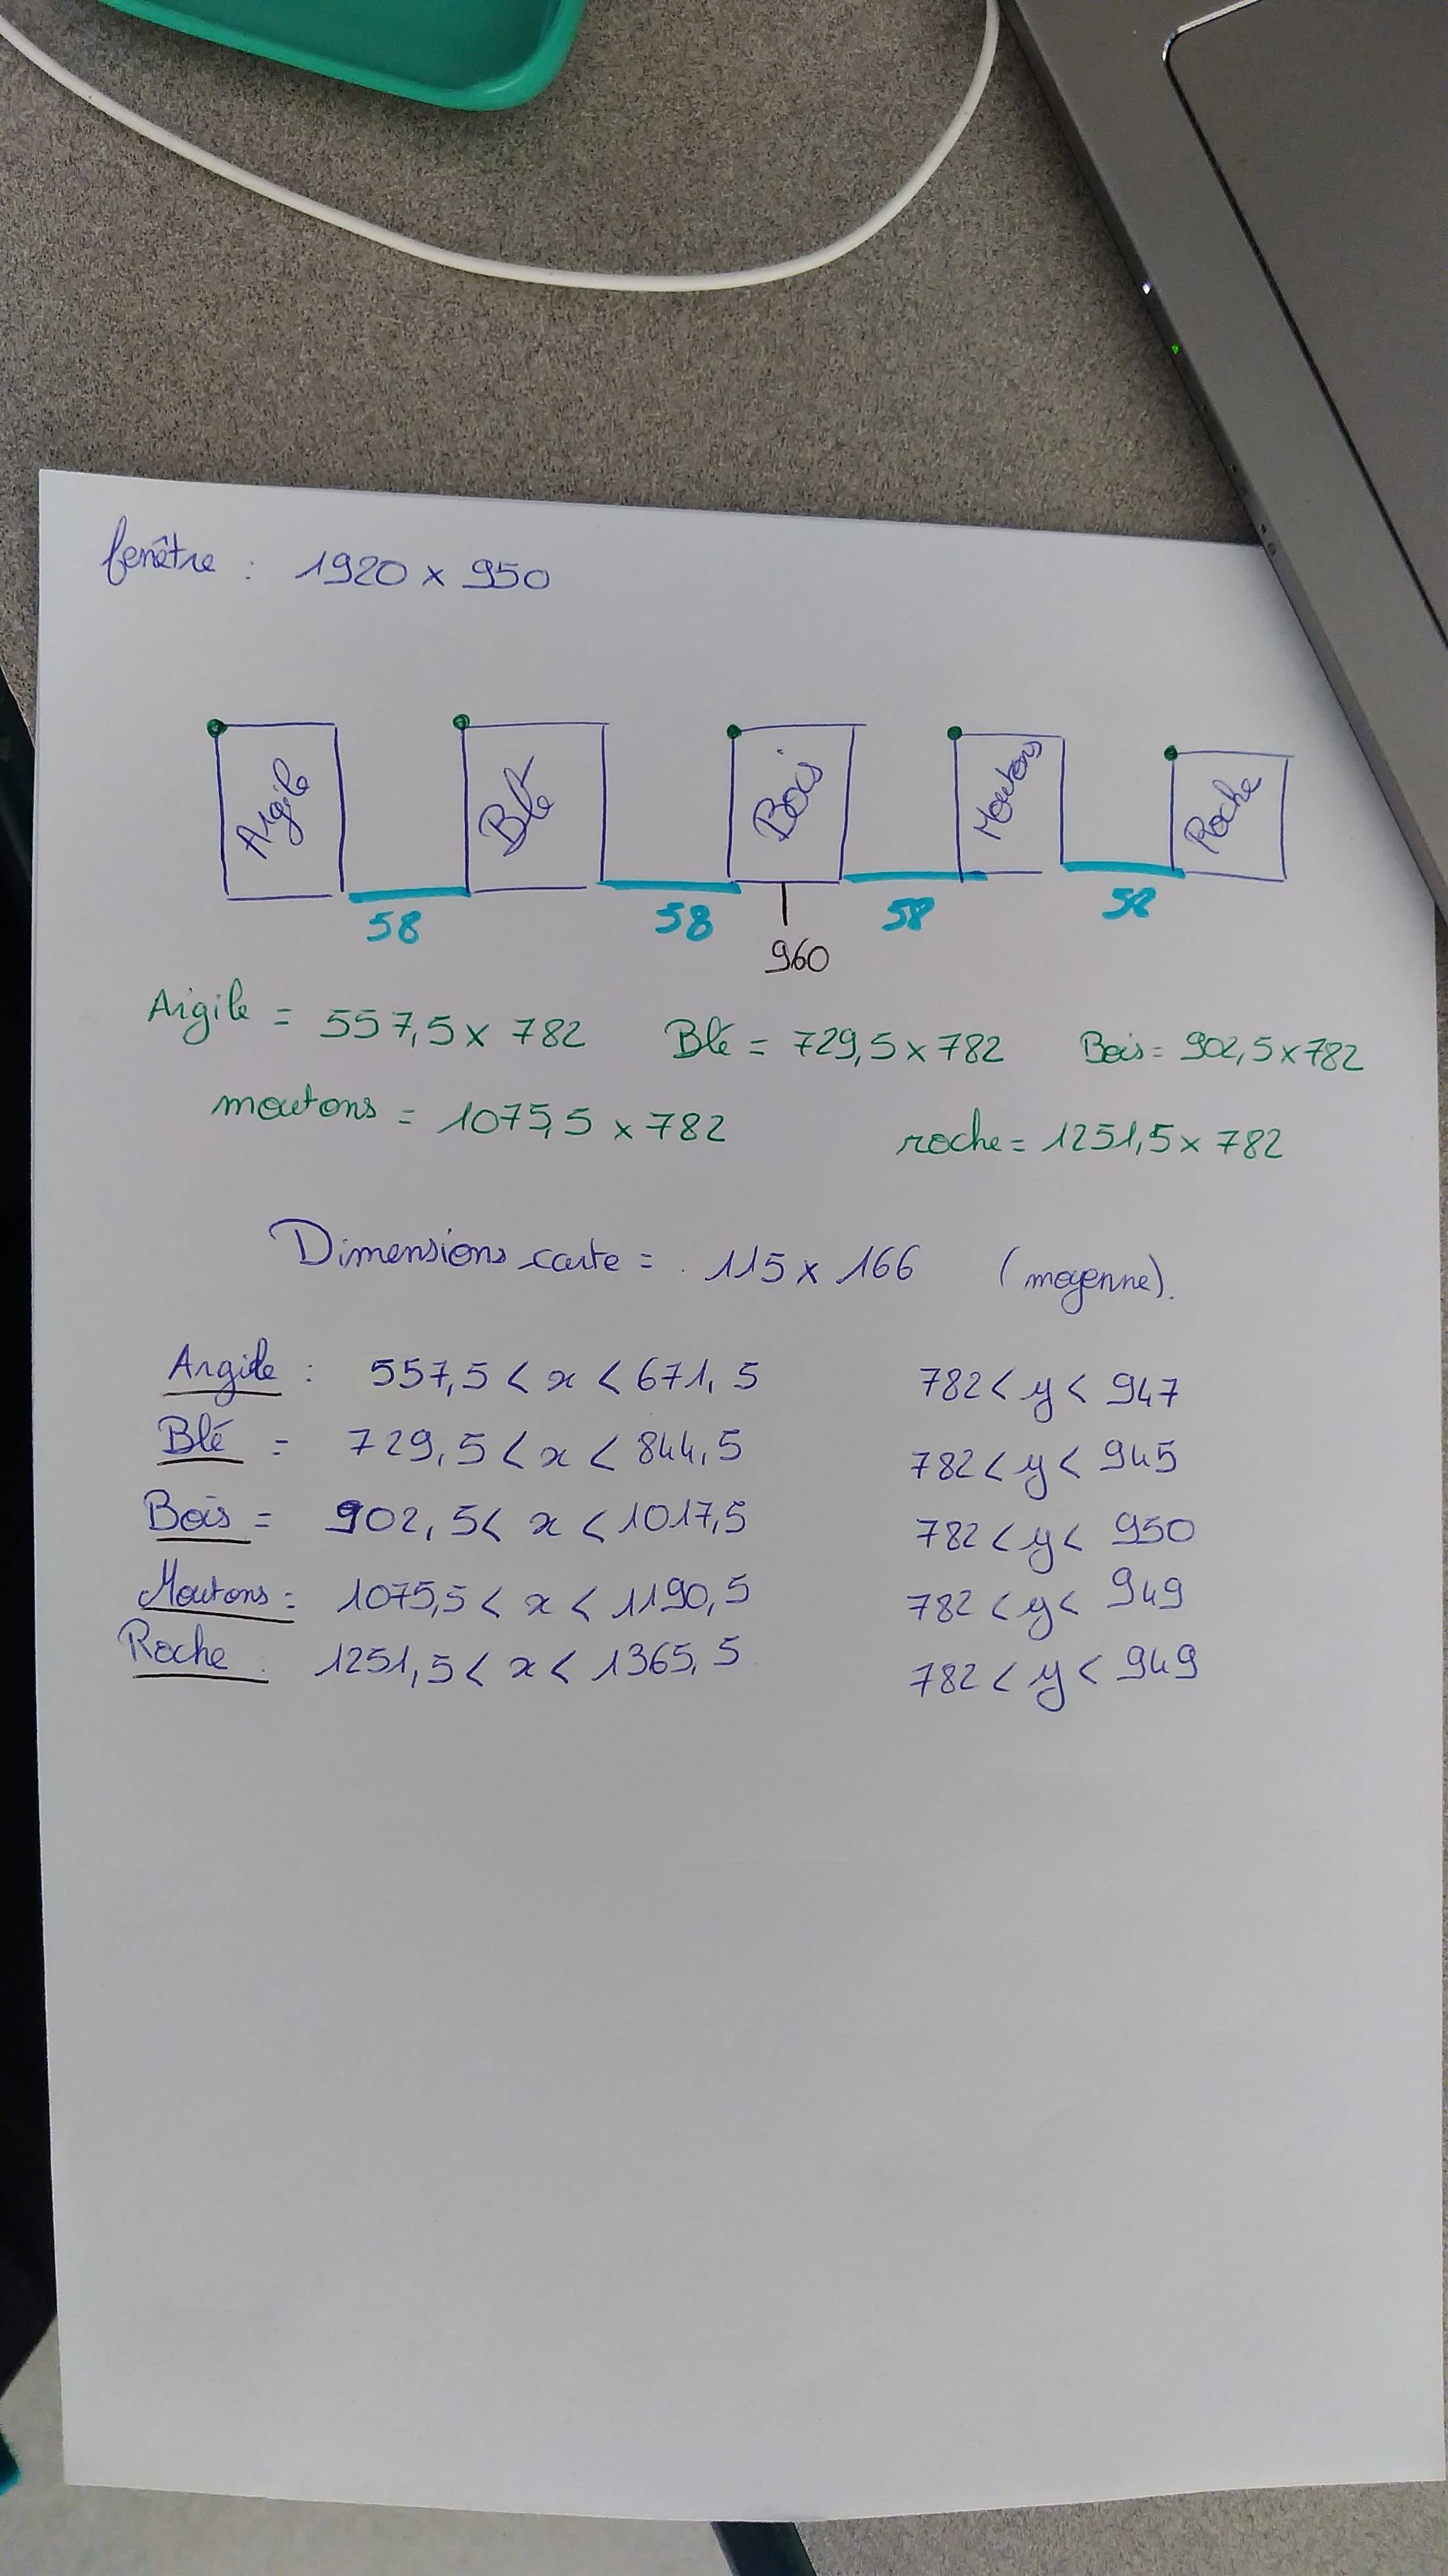 fenêtre : 1920 x 950
Argile Blé Bois Moutons Roche
58 58 58 58
960
Argile = 557,5 x 782 Blé = 729,5 x 782 Bois = 902,5 x 782
moutons = 1075,5 x 782 roche = 1251,5 x 782
Dimensions carte = 115 x 166 (moyenne).
Argile : 557,5 < x < 671,5 782 < y < 947
Blé = 729,5 < x < 844,5 782 < y < 945
Bois = 902,5 < x < 1017,5 782 < y < 950
Moutons = 1075,5 < x < 1190,5 782 < y < 949
Roche : 1251,5 < x < 1365,5 782 < y < 949